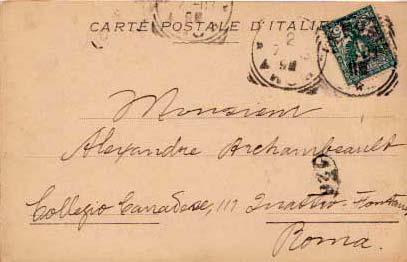 CARTE POSTALE D'ITALIE
Monsieur
Alexandre Archambeault
Collegio Canadese, 117 Quattro Fontane
Roma.